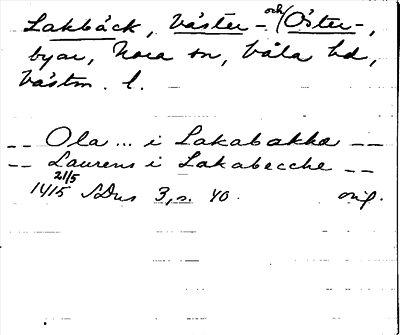 Lakbäck, Väster- och (Öster-,
byar, Nora sn, Våla hd,
Västm. l.
-- Ola ... i Lakabakka --
-- Laurens i Lakabecche --
21/5
1415 SDns 3, s. 40. orig.